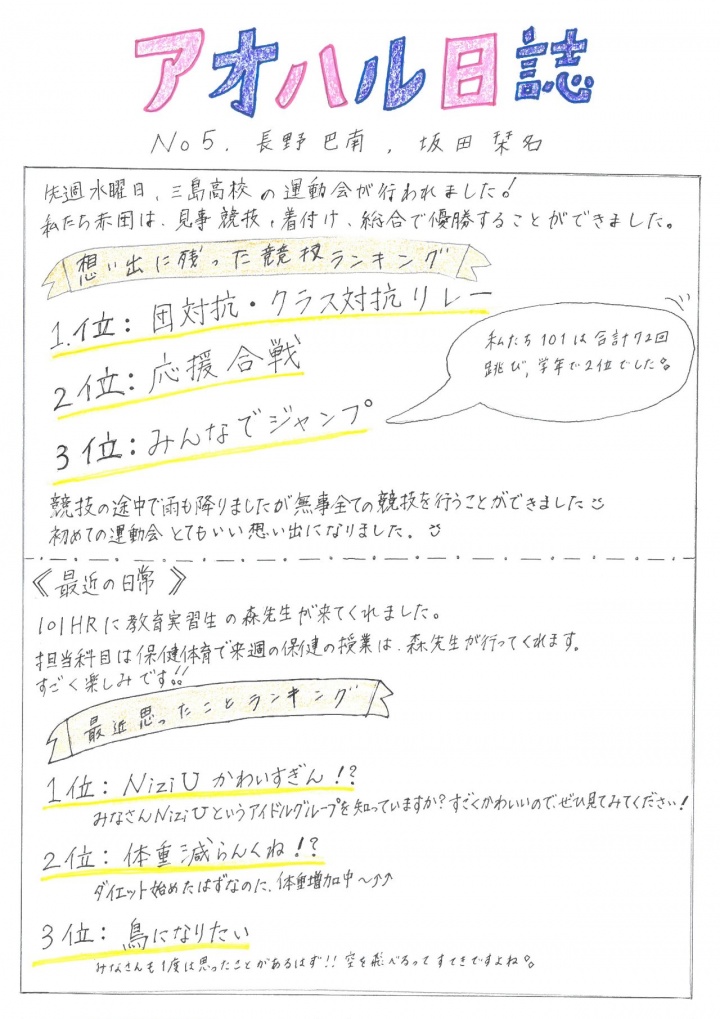 アオハル日誌
No5. 長野 巴南, 坂田 栞名
先週水曜日、三島高校の運動会が行われました!
私たち赤団は、見事競技、着付け、総合で優勝することができました。
想い出に残った競技ランキング
1.位:団対抗・クラス対抗リレー
私たち101は合計72回
跳び、学年で2位でした。
2位:応援合戦
3位:みんなでジャンプ
競技の途中で雨も降りましたが無事全ての競技を行うことができました
初めての運動会とてもいい想い出になりました.
《最近の日常》
101HRに教育実習生の森先生が来てくれました。
担当科目は保健体育で来週の保健の授業は、森先生が行ってくれます。
すごく楽しみです!!
最近思ったことランキング
1位:NiziUかわいすぎん!?
みなさんNiziUというアイドルグループを知っていますか?すごくかわいいので、ぜひ見てみてください!
2位:体重減らんくね!?
ダイエット始めたはずなのに、体重増加中〜↑↑
3位:鳥になりたい
みなさんも1度は思ったことがあるはず!!空を飛べるってすてきですよね。